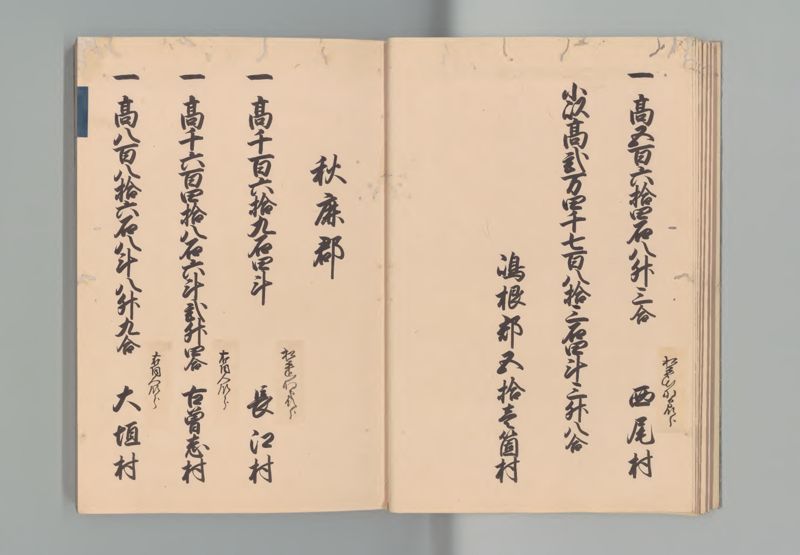 一 高五百六拾四石八升三合
西尾村
小以高弐万四千七百八拾三石四斗三升八合
嶋根郡五拾壱箇村
秋鹿郡
一 高千百六拾九石四斗
長江村
一 高千六百四拾八石六斗弐升四合
古曽志村
一 高八百八拾六石八斗八升九合
大垣村